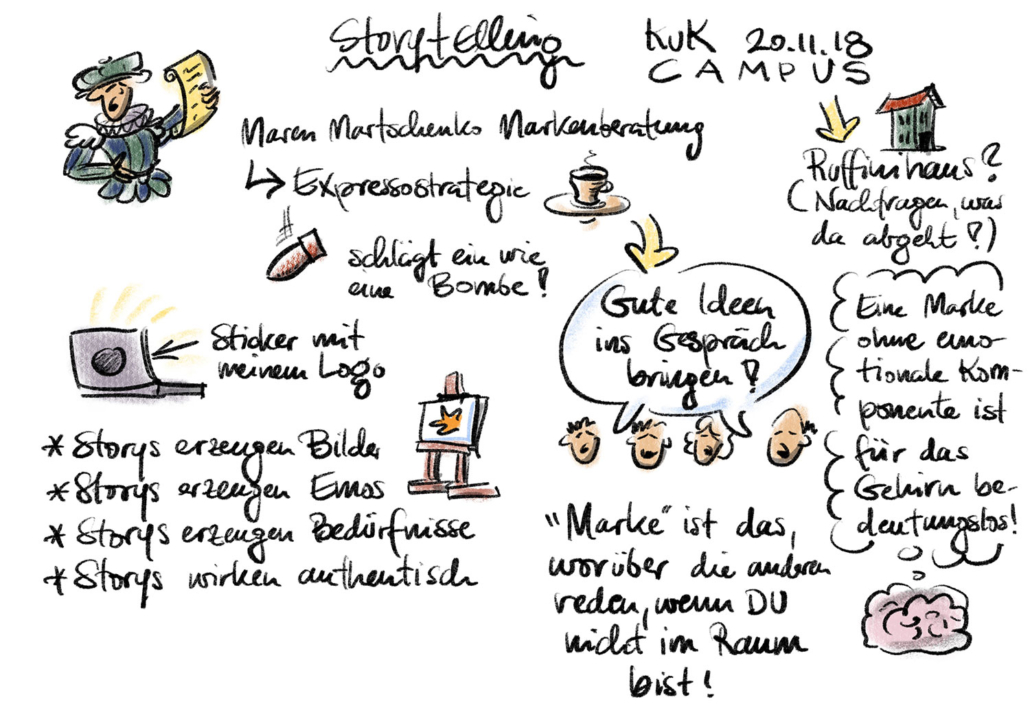 Storytelling
KuK 20.11.18
CAMPUS
Maren Martschenko Markenberatung
Expressostrategie
schlägt ein wie
eine Bombe!
Sticker mit
meinem Logo
* Storys erzeugen Bilder
* Storys erzeugen Emos
* Storys erzeugen Bedürfnisse
* Storys wirken authentisch
Ruffinihaus?
(Nachfragen, was
da abgeht?)
Gute Ideen
ins Gespräch
bringen!
Eine Marke
ohne emo-
tionale Kom-
ponente ist
für das
Gehirn be-
deutungslos!
"Marke" ist das,
worüber die anderen
reden, wenn DU
nicht im Raum
bist!